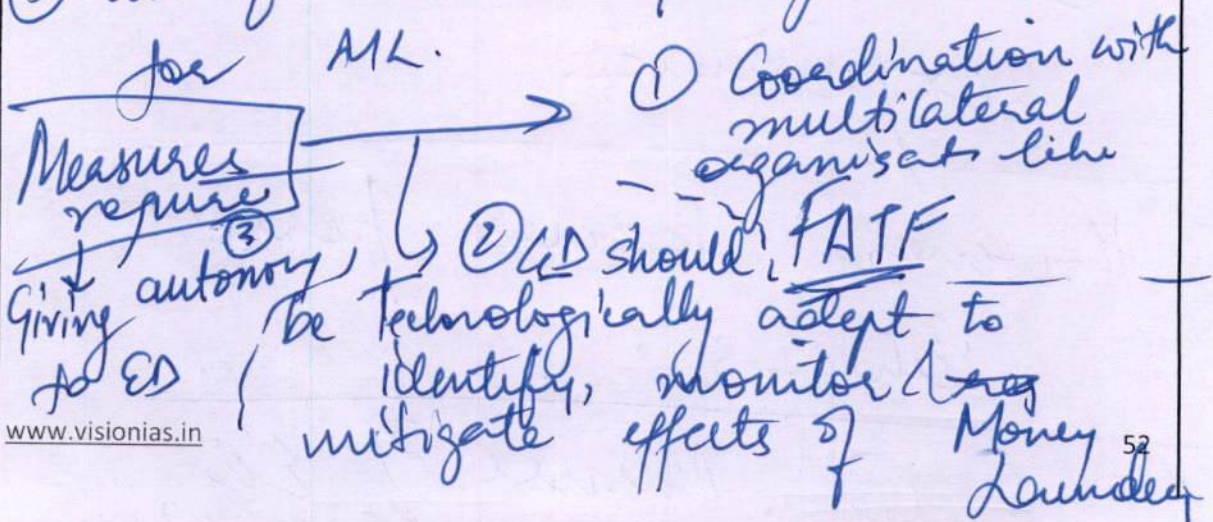 for M/L.
Measures
require
① Coordination with
multilateral
organisat like
FATF
② ED should,
be technologically adept to
identify, monitor &
mitigate effects of Money
Launder
③
Giving autonomy
to ED
www.visionias.in
52